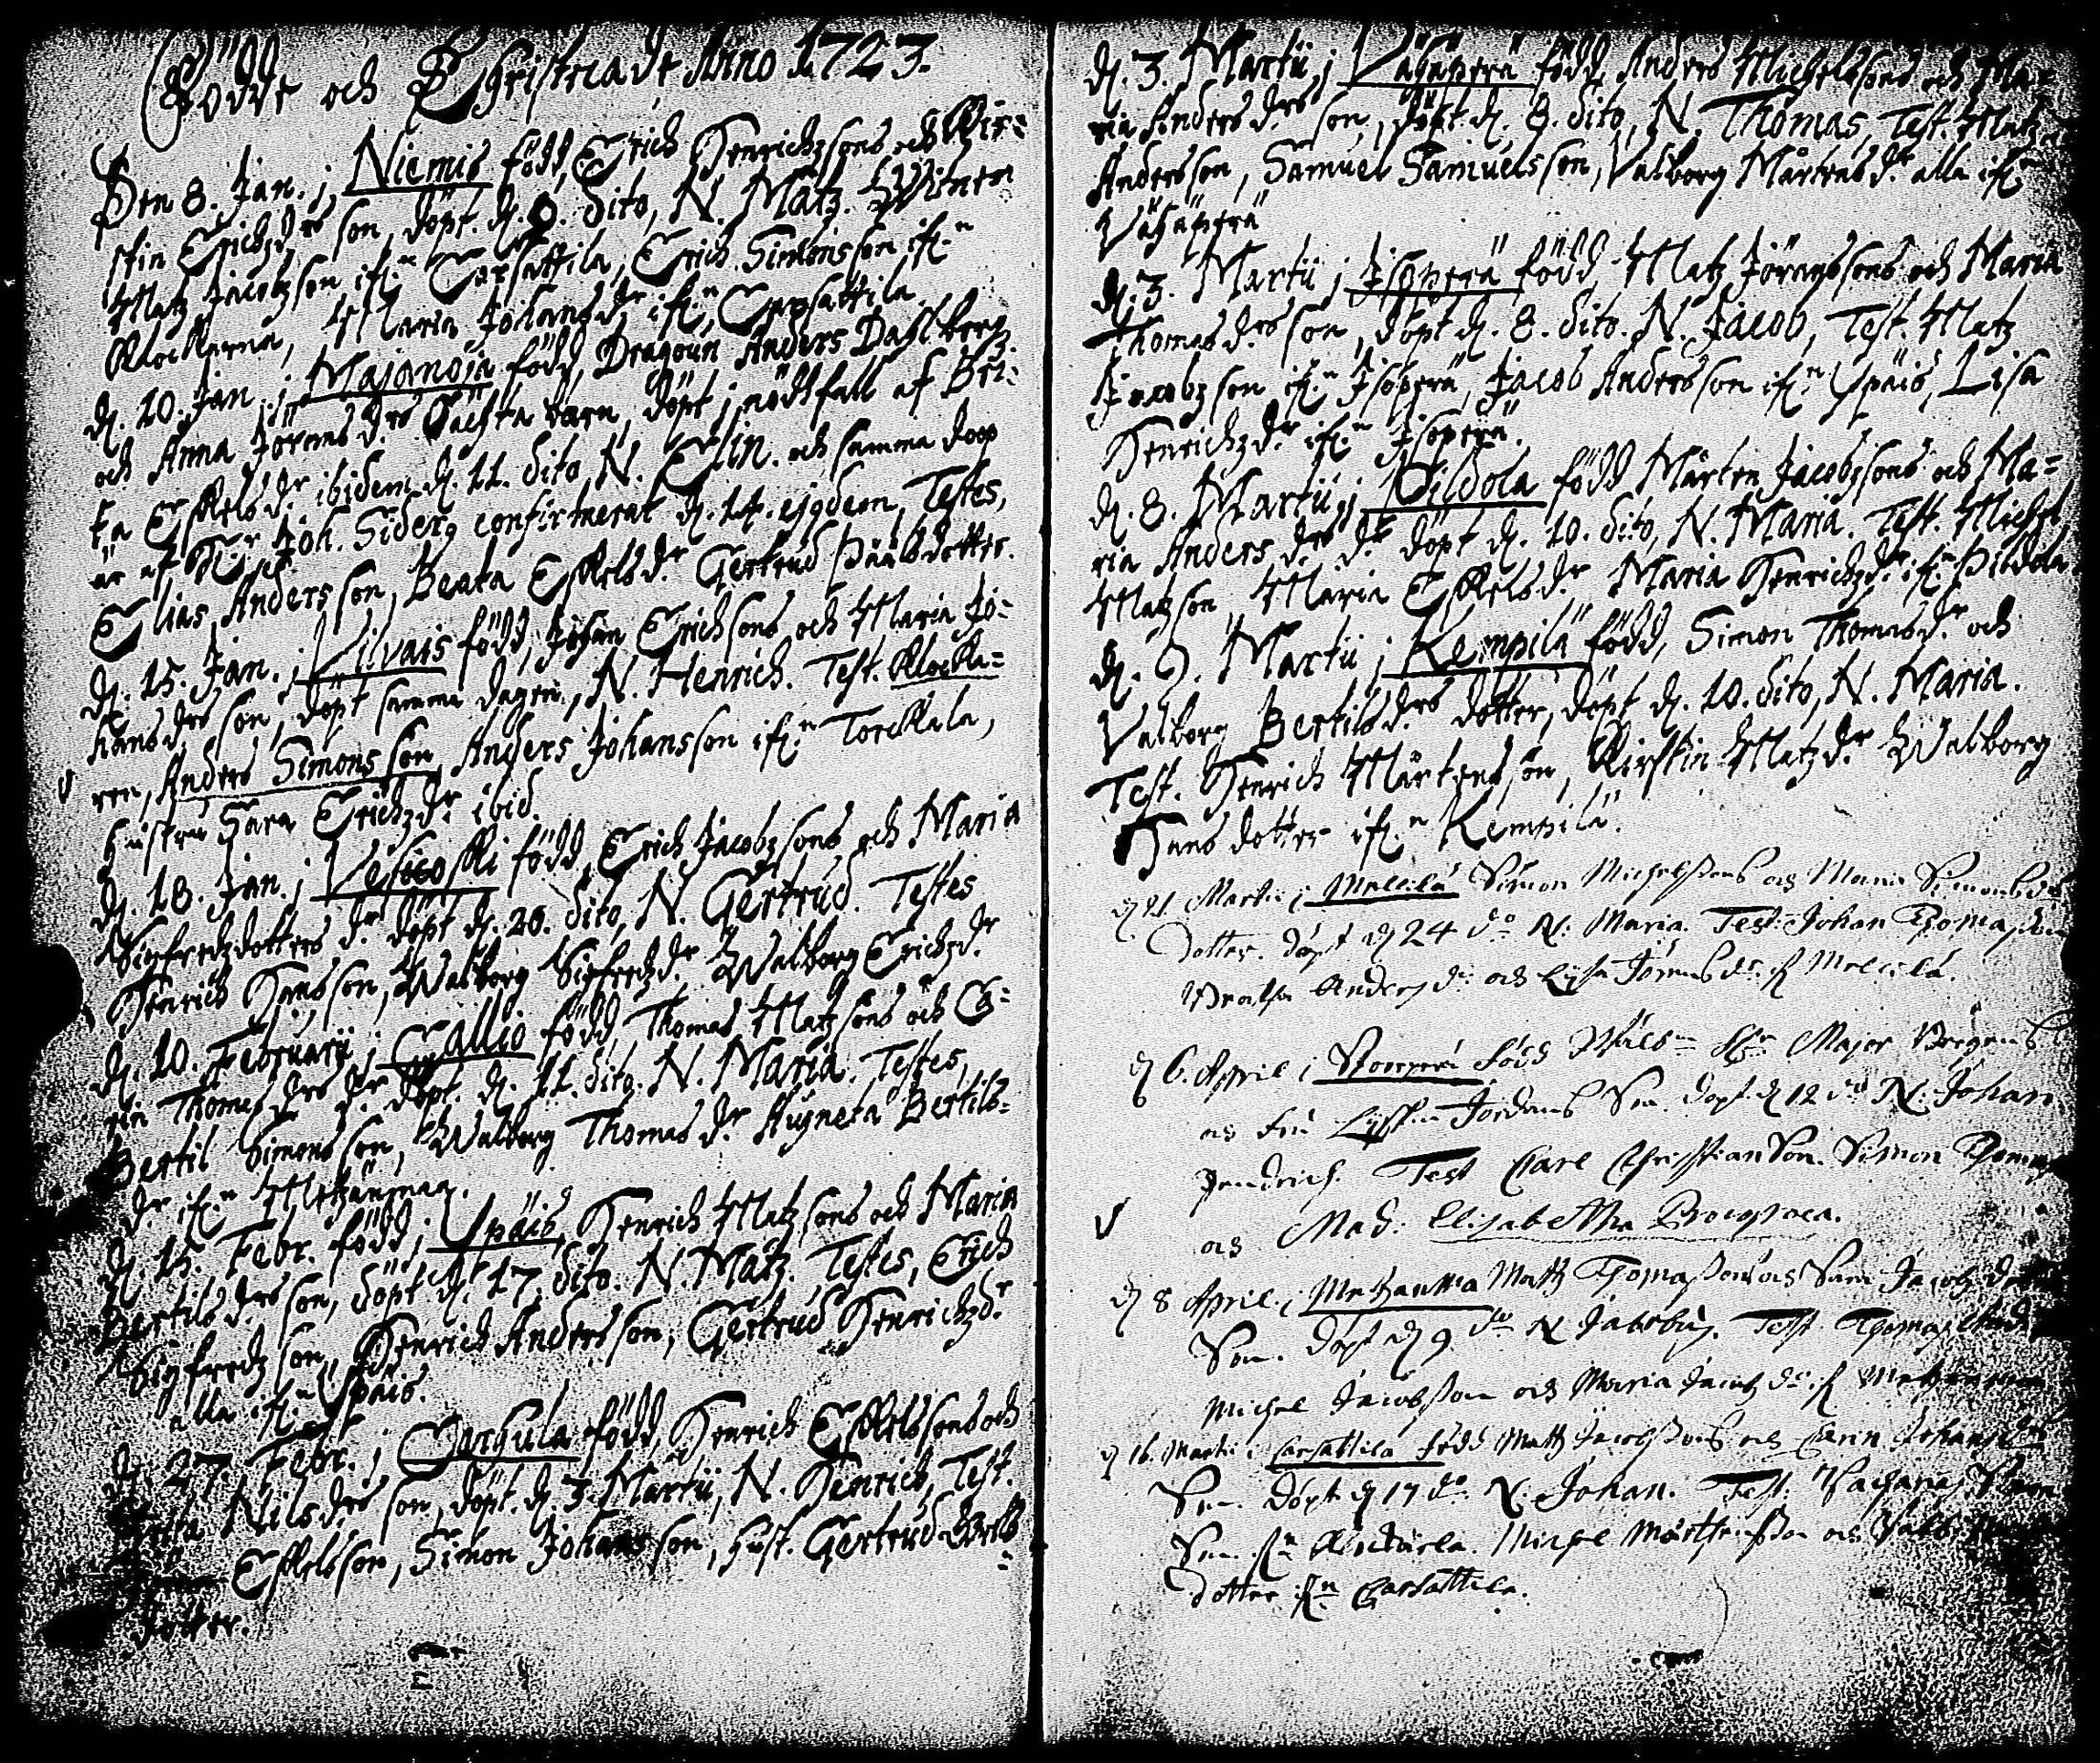 Födde och Christnade Anno 1723.
Den 8. Jan. j Niemis född, Erich Henrichzsons och Kir=
stin Erichzdrs son, döpt. d. 9. dito, N. Matz. Witnen
Matz Jacobzson ifrn Carsattila, Erich Simonsson ifrn
Klockarna, Maria Johansdr ifrn Carsattila.
d. 10. Jan. j Majanoja född, Dragoun Anders Dahlbergz
och Anna Jörensdrs barn, döpt j nödfall af Bri=
ta Eskelsdr ibidem d. 11. dito, N. Elin. och samma doop
är af Hr Joh. Siderg confirmerat d. 14. ejusdem, Testes,
Elias Andersson, Beata Eskelsdr Gertrud Påålsdotter.
d. 15. Jan. j Vilvais född, Johan Erichsons och Maria Jo=
hansdrs son, döpt samma dagen, N. Henrich. Test. Klocka=
ren, Anders Simonsson, Anders Johansson ifrn Torckala,
hustru Sara Erichzdr ibid.
d. 18. Jan. j Vesicoski född, Erich Jacobzsons och Maria
Sigfredzdotters dr döpt d. 20. dito, N. Gertrud. Testes
Henrich Hansson, Walborg Sigfredzdr Walborg Erichzdr
d. 10. Februarij j Gallio född, Thomas Matzsons och Ca=
rin Thomasdrs dr döpt. d. 11. dito. N. Maria. Testes,
Bertil Simonsson, Walborg Thomasdr Augneta Bertils=
dr ifrn Metzänmaa.
d. 15. Febr. född j Ypäis, Henrich Matzsons och Maria
Bertilsdrs son, döpt d. 17. dito. N. Matz. Testes, Erich
Sigfredzson, Henrich Andersson, Gertrud Henrichzdr
alla ifrn Ypäis.
d. 27. Febr. j Carhula född, Henrich Eskelssons och
Nilsdrs son, döpt. d. 3. Martii, N. Henrich, Test.
Eskelsson, Simon Johansson, hust. Gertrud
dotter.
d. 3. Martii j Vähäperä född, Anders Michelssons och Ma=
ria Andersdrs son, döpt. d. 8. dito, N. Thomas, Test. Matz
Andersson, Samuel Samuelsson, Valborg Mårtensdr alla ifrn
Vähäperä
d. 3. Martii j Isoperä född, Matz Jöranssons och Maria
Thomasdrs son, döpt d. 8. dito. N. Jacob, Test. Matz
Jacobzson ifrn Isoperä, Jacob Andersson ifrn Ypäis, Lisa
Henrichzdr ifrn Isoperä.
d. 8. Martii j Pildola född Mårten Jacobzsons och Ma=
ria Andersdrs dr döpt d. 10. dito, N. Maria. Test. Michel
Matzson, Maria Eskelsdr Maria Henrichzdr ifrn Pildola
d. 9. Martii j Kempilä född, Simon Thomasdr och
Valborg Bertilsdrs dotter, döpt d. 10. dito, N. Maria.
Test. Henrich Mårtensson, Kirstin Matzdr Walborg
Hans dotter ifrn Kempilä.
d 21 Martii j Mellilä Simon Michelssons och Maria Simonsdrs
Dotter. döpt d 24 do N: Maria. Test: Johan Thomasson
Andersdr och Lisa Jöransdr if Mellilä.
d 6. April i född Major
och Fru Jordans Son. döpt d 12 do N: Johan
Hendrich. Test Carl Christianson. Simon Thomas
och Mad: Elisabetha
d 8 April. j Metzänmaa Matz Thomassons och Jacobz
Son. Döpt d 9 do N Test. Thomas
Michel Jacobsson och Maria Jacobz dr if Metzänmaa
d 16. Martii i Carsattila född Matz Jacobssons och Carin Johans
Son. Döpt d 17 do. N: Johan. Test: Zacharias Simon
Son Michel Mårthensson och
dotter ifn Carsattila.